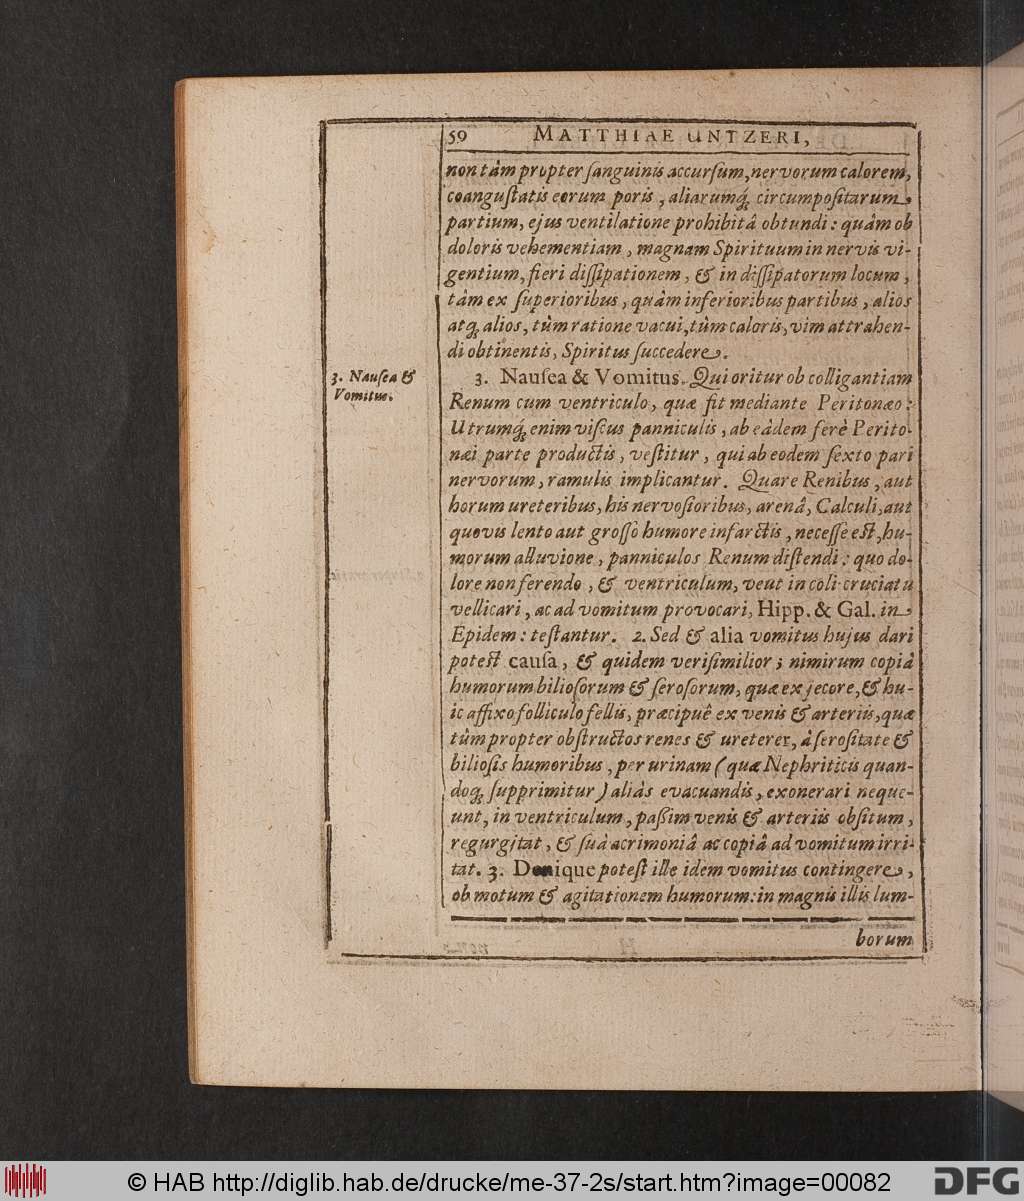 59 MATTHIAE UNTZERI,
non tàm propter ſanguinis accurſum, nervorum calorem,
coanguſtatis eorum poris, aliarumq́; circumpoſitarum
partium, ejus ventilatione prohibitâ obtundi: quàm ob
doloris vehementiam, magnam Spirituum in nervis vi-
gentium, fieri diſſipationem, & in diſſipatorum locum,
tàm ex ſuperioribus, quàm inferioribus partibus, alios
atq; alios, tùm ratione vacui, tùm caloris, vim attrahen-
di obtinentis, Spiritus ſuccedere.
3. Nauſea &
Vomitus.
3. Nauſea & Vomitus. Qui oritur ob colligantiam
Renum cum ventriculo, quæ fit mediante Peritonæo:
Utrumq́; enim viſcus panniculis, ab eâdem ferè Perito-
næi parte productis, veſtitur, qui ab eodem ſexto pari
nervorum, ramulis implicantur. Quare Renibus, aut
horum ureteribus, his nervoſioribus, arenâ, Calculi, aut
quovis lento aut groſſo humore infarctis, neceſſe eſt, hu-
morum alluvione, panniculos Renum diſtendi: quo do-
lore non ferendo, & ventriculum, veut in coli cruciatu
vellicari, ac ad vomitum provocari, Hipp. & Gal. in
Epidem: teſtantur. 2. Sed & alia vomitus hujus dari
poteſt cauſa, & quidem veriſimilior; nimirum copiâ
humorum bilioſorum & ſeroſorum, quæ ex jecore, & hu-
ic affixo folliculo fellis, præcipuè ex venis & arteriis, quæ
tùm propter obſtructos renes & ureteres, à ſeroſitate &
bilioſis humoribus, per urinam (quæ Nephriticis quan-
doq; ſupprimitur) aliàs evacuandis, exonerari neque-
unt, in ventriculum, paßim venis & arteriis obſitum,
regurgitat, & ſuâ acrimoniâ ac copiâ ad vomitum irri-
tat. 3. Denique poteſt ille idem vomitus contingere,
ob motum & agitationem humorum: in magnis illis lum-
borum
© HAB http://diglib.hab.de/drucke/me-37-2s/start.htm?image=00082
DFG